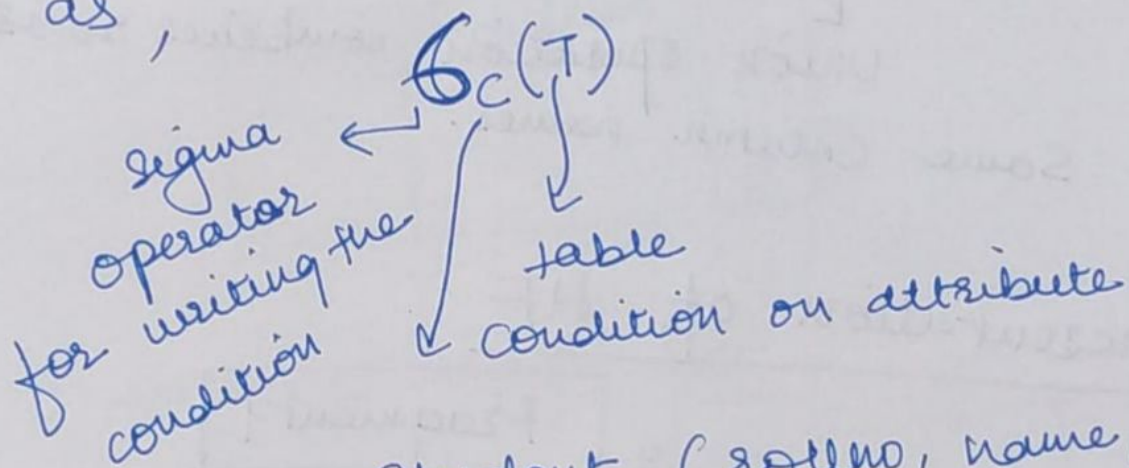 as,
σc(T)
sigma
operator
for writing the
condition
table
condition on attribute
(rollno, name